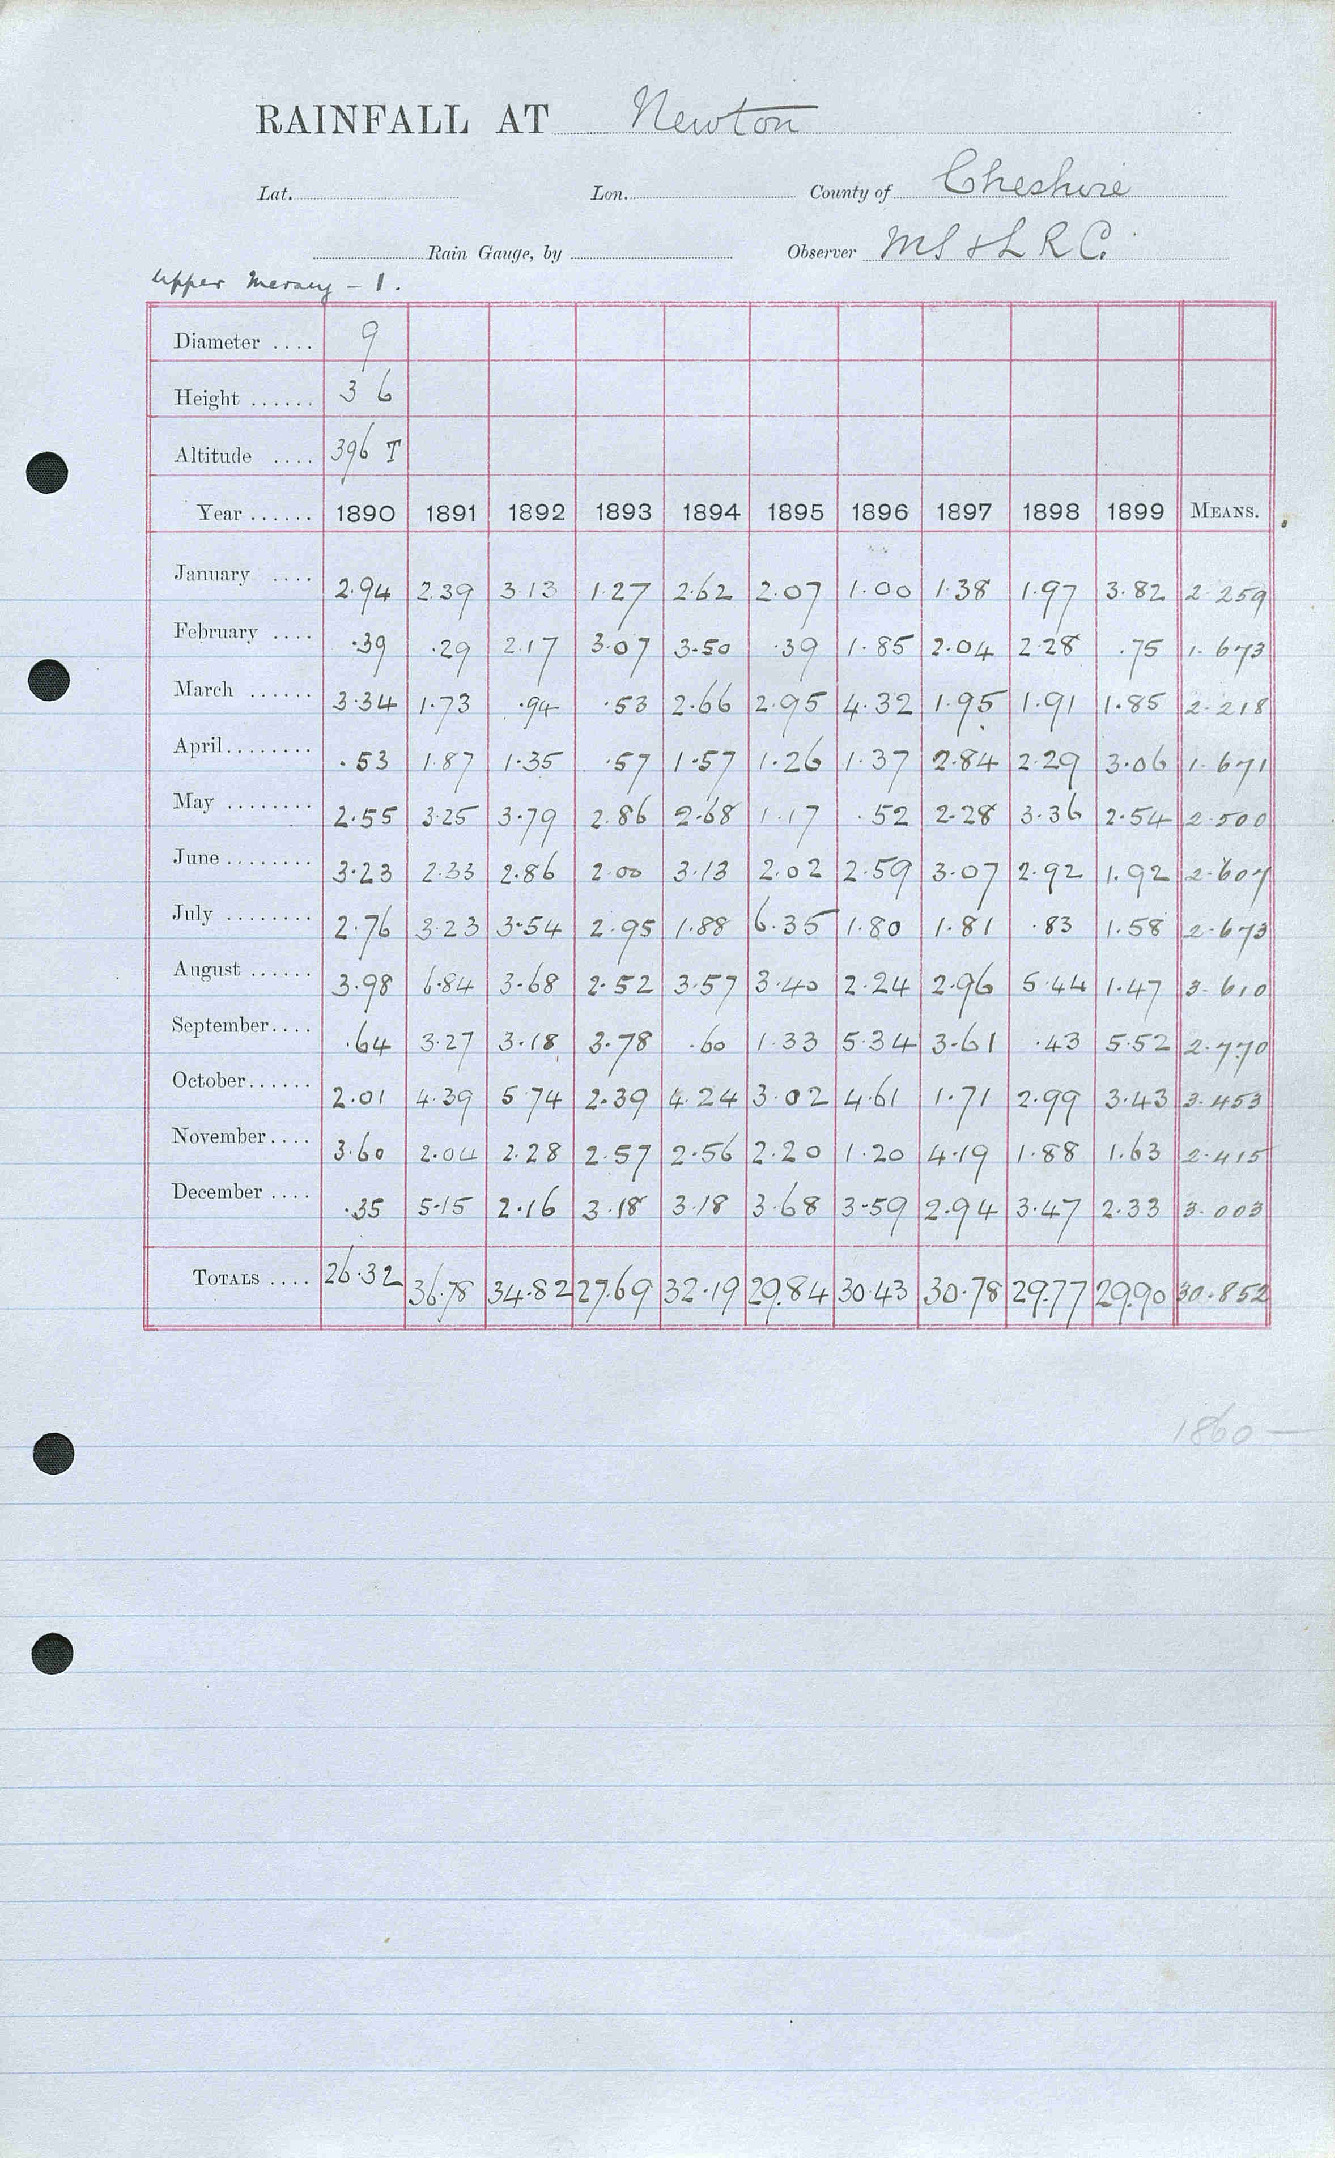 RAINFALL AT Newton
Lat. Lon. County of Cheshire
Rain Gauge, by Observer MS & L R C.
Upper Mersey - 1.
Diameter .... 9
Height ...... 3 6
Altitude .... 396 T
Year ...... 1890 1891 1892 1893 1894 1895 1896 1897 1898 1899 MEANS.
January .... 2.94 2.39 3.13 1.27 2.62 2.07 1.00 1.38 1.97 3.82 2.259
February .... .39 .29 2.17 3.07 3.50 .39 1.85 2.04 2.28 .75 1.673
March ...... 3.34 1.73 .94 .53 2.66 2.95 4.32 1.95 1.91 1.85 2.218
April........ .53 1.87 1.35 .57 1.57 1.26 1.37 2.84 2.29 3.06 1.671
May ........ 2.55 3.25 3.79 2.86 2.68 1.17 .52 2.28 3.36 2.54 2.500
June ........ 3.23 2.33 2.86 2.00 3.13 2.02 2.59 3.07 2.92 1.92 2.607
July ........ 2.76 3.23 3.54 2.95 1.88 6.35 1.80 1.81 .83 1.58 2.673
August ...... 3.98 6.84 3.68 2.52 3.57 3.40 2.24 2.96 5.44 1.47 3.610
September.... .64 3.27 3.18 3.78 .60 1.33 5.34 3.61 .43 5.52 2.770
October...... 2.01 4.39 5.74 2.39 4.24 3.02 4.61 1.71 2.99 3.43 3.453
November.... 3.60 2.04 2.28 2.57 2.56 2.20 1.20 4.19 1.88 1.63 2.415
December .... .35 5.15 2.16 3.18 3.18 3.68 3.59 2.94 3.47 2.33 3.003
TOTALS .... 26.32 36.78 34.82 27.69 32.19 29.84 30.43 30.78 29.77 29.90 30.852
1860 —